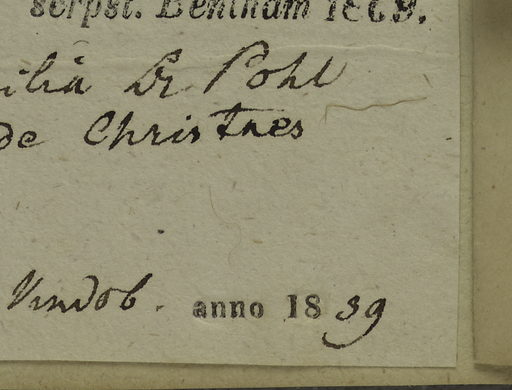 scrpsi. Bentham 1869.
ilia Dr. Pohl
de Christnes
Vindob. anno 18 39